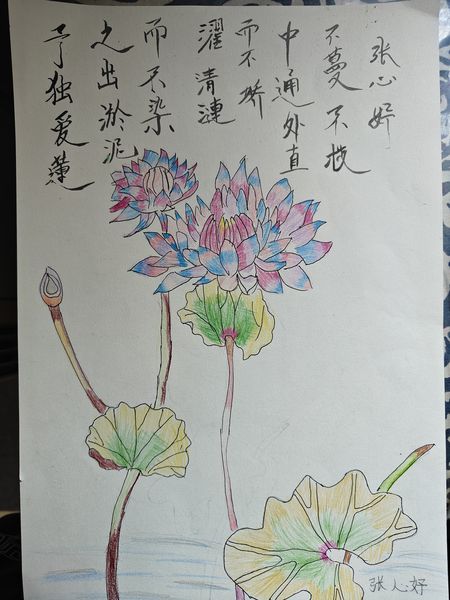 予独爱蓮
之出淤泥
而不染
濯清漣
而不娇
中通外直
不蔓不枝
张心妤
张心妤